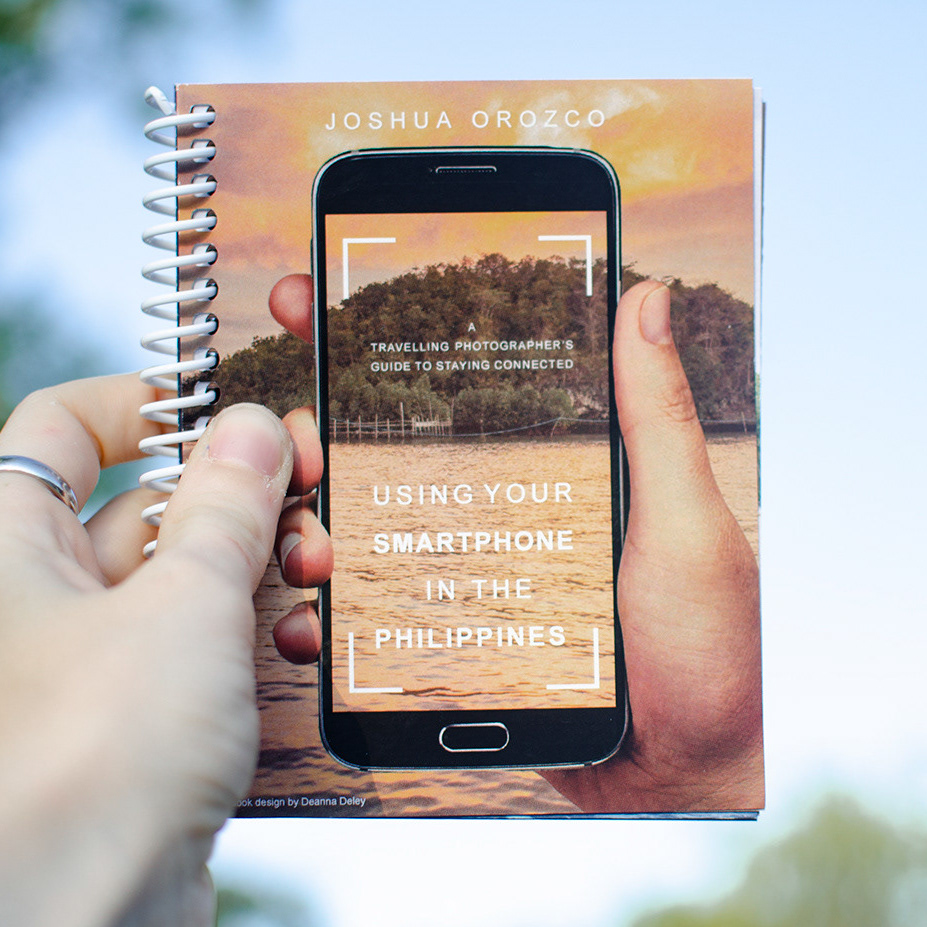 JOSHUA OROZCO
A
TRAVELLING PHOTOGRAPHER'S
GUIDE TO STAYING CONNECTED
USING YOUR
SMARTPHONE
IN THE
PHILIPPINES
design by Deanna Deley